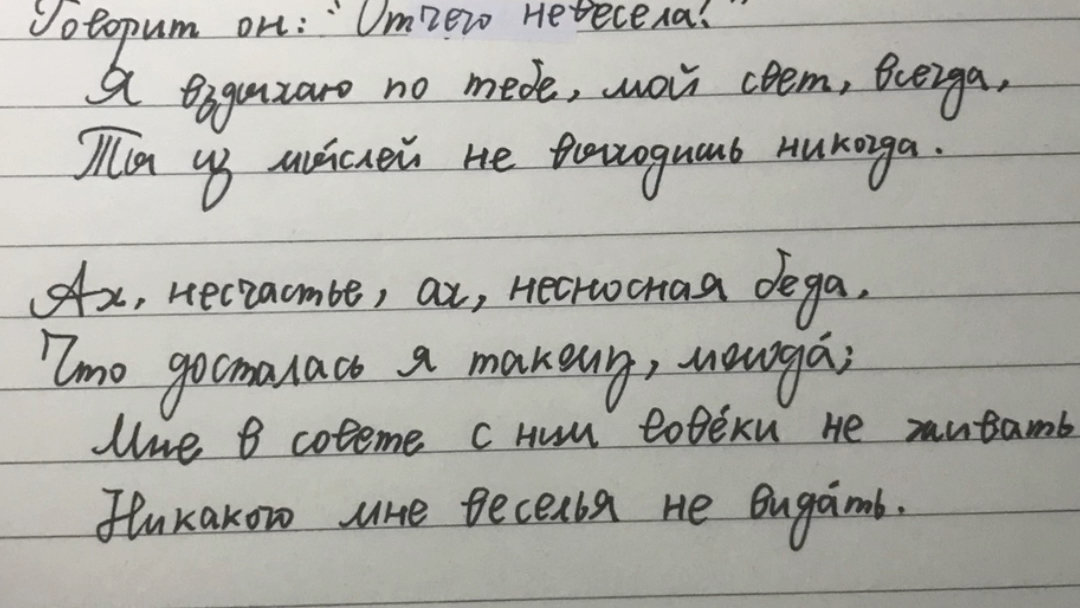 Говорит он: "Отчего невесела?"
Я вздыхаю по тебе, мой свет, всегда,
Ты из мы́слей не выходишь никогда.
Ах, несчастье, ах, несносная беда,
Что досталась я такому, молода́;
Мне в совете с ним вове́ки не живать
Никакого мне веселья не вида́ть.